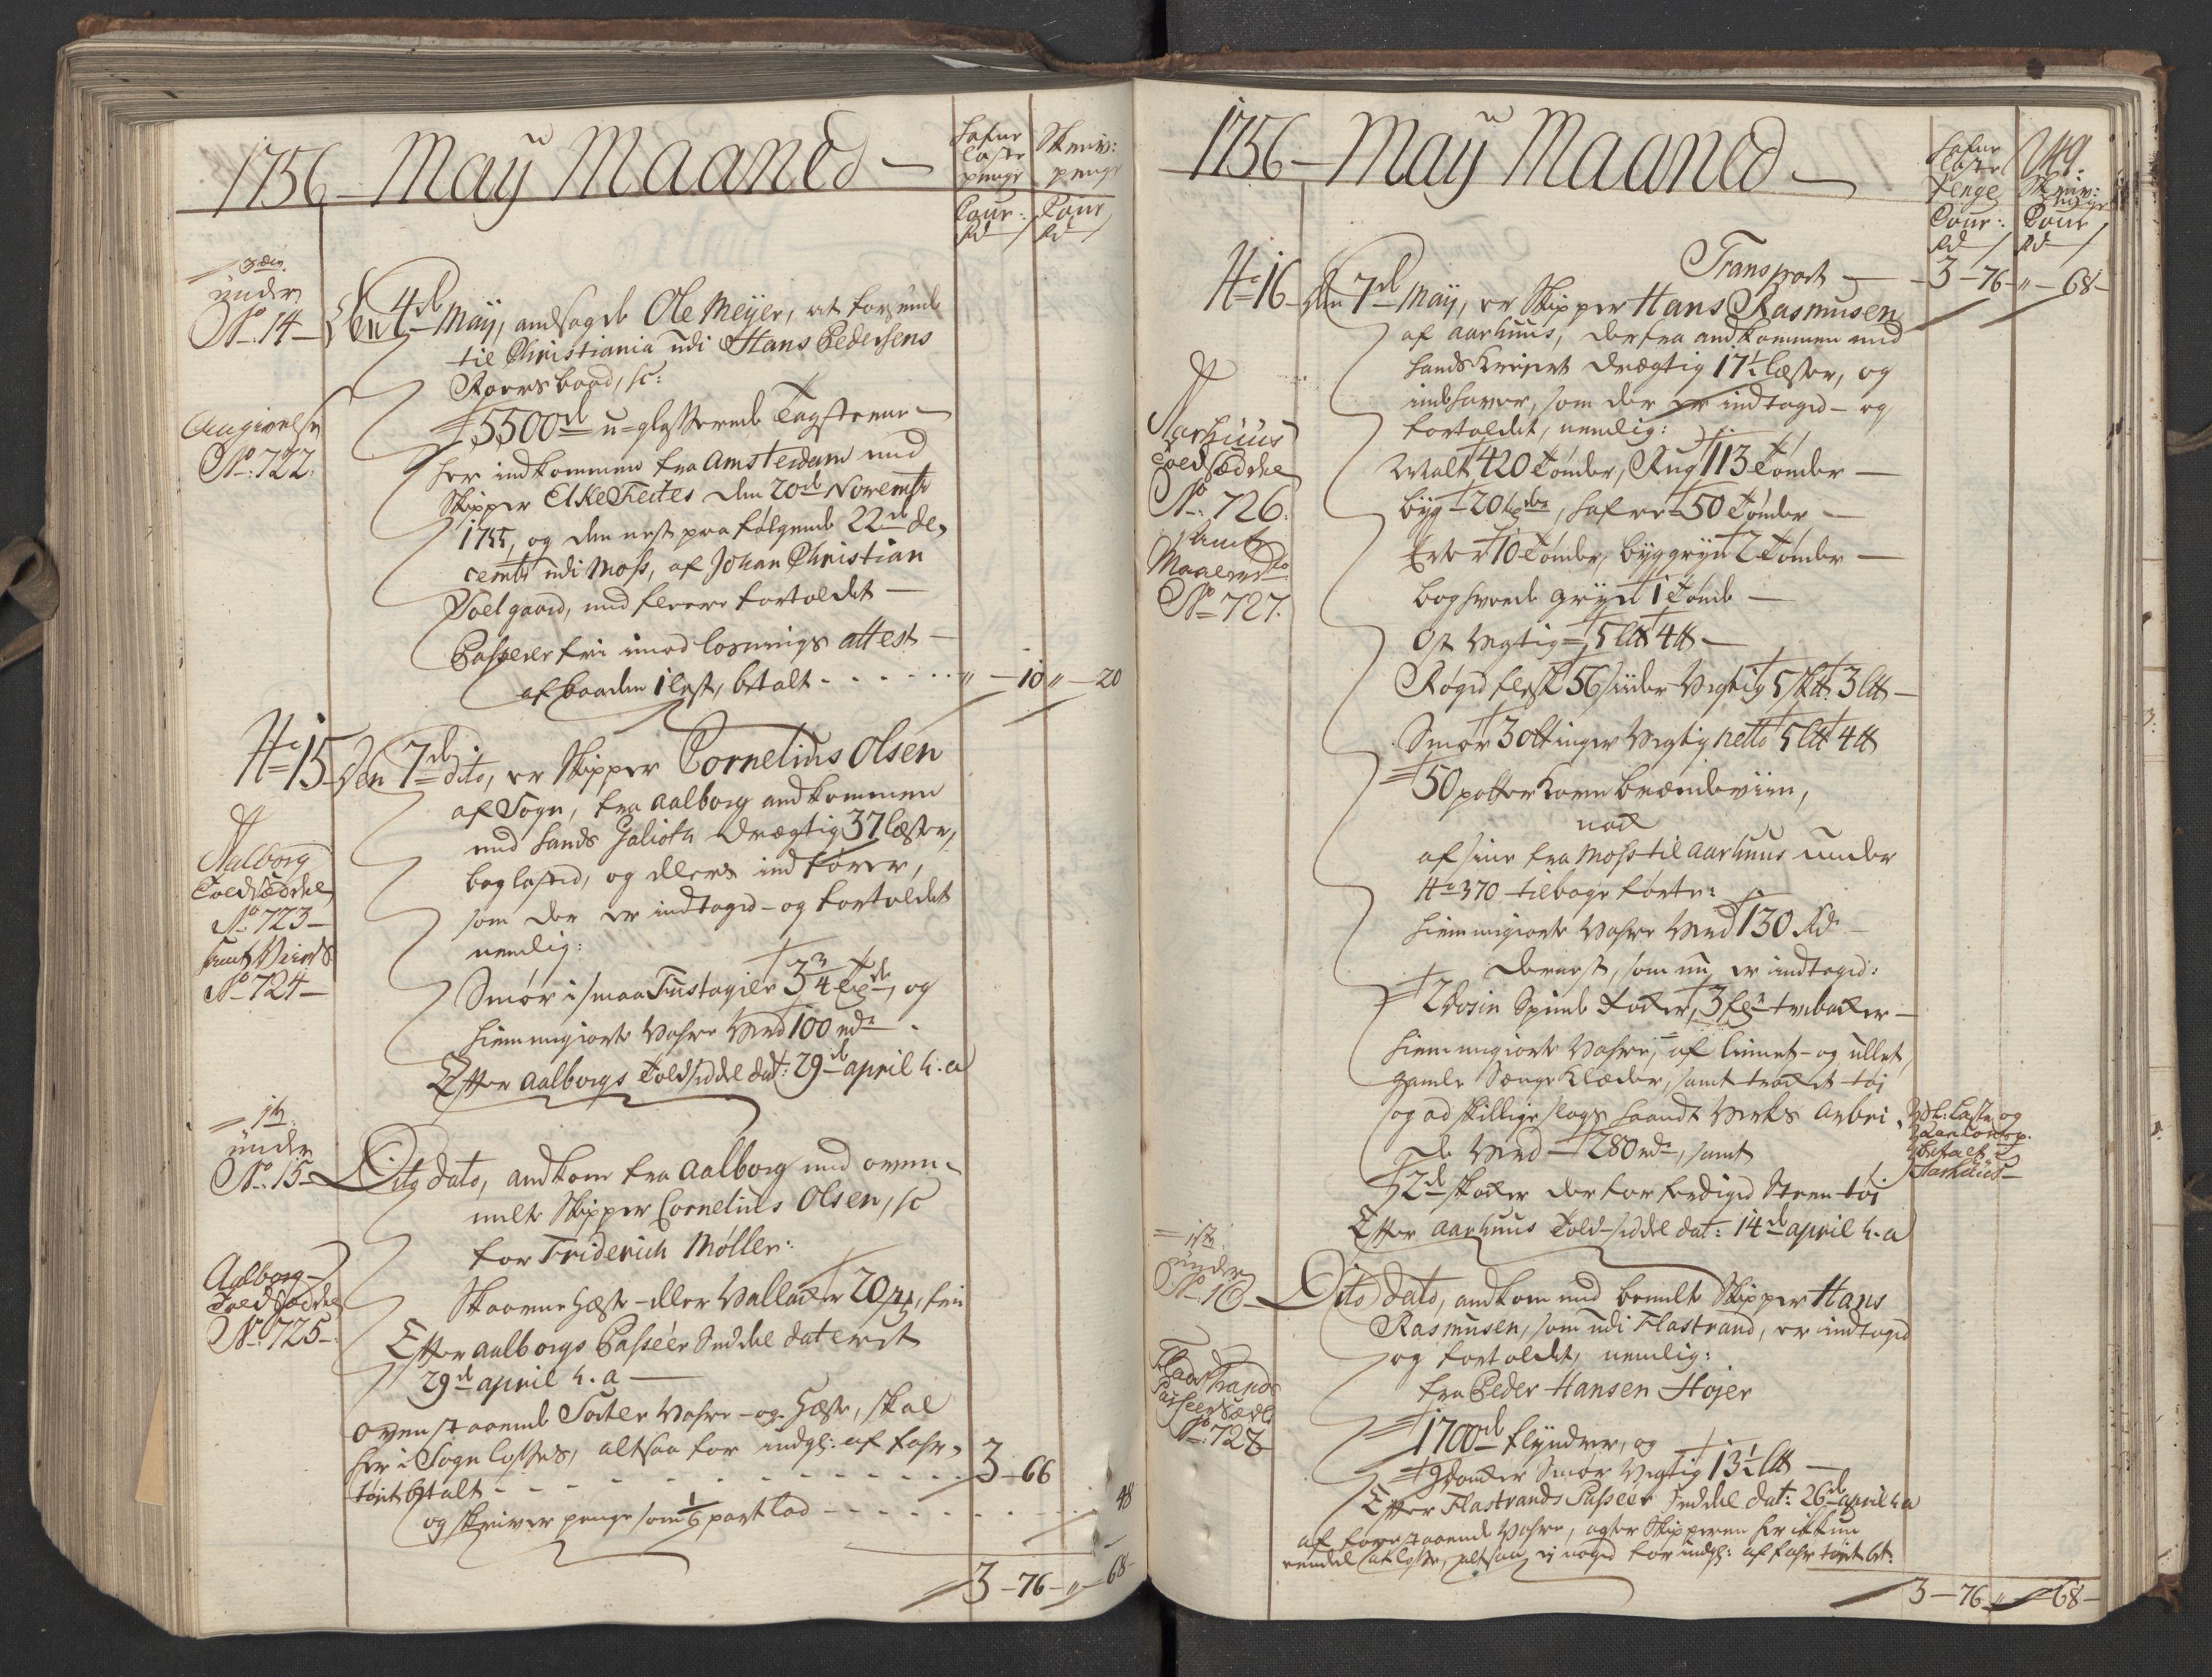 1756 – Maÿ Maaned –
Hafne
laste
penge
Skriv:
penge
Cour:
Rd /
Cour
Rd /
3die
under
No: 14 – Den 4de Maÿ, andsagde Ole Meÿer, at forsende
til Christiania udi Hans Pedersens
Roersbaad, sc:
5500de u-glasserede Tagsteene –
Angivelse
No: 722.
her indkommen fra Amsterdam med
Skipper Elke Feites den 20de Novembr
1755, og den nest paa følgende 22de De-
cembr udi Moss, af Johan Christian
Soelgaard, med fleere fortoldet –
Passerer fri imod losnings attest –
af baaden 1 lest, betalt - - - - - - " – 10 " – 20
No 15 – Den 7de dito, er Skipper Cornelius Olsen
af Sogn, fra Aalborg andkommen
med hands Galioth drægtig 37 læster,
baglasted, og ellers indfører,
som der er indtaged – og fortoldet
nemlig:
Aalborg
Toldsæddel
No: 723 –
No 724 –
Smør i smaa Fustagier 3 3/4 tdr, og
hiemmegiorte Vahre Værd 100 rdr.
Efter Aalborgs Toldseddel dat: 29de april h. a
1ste
under
No: 15 – Dito dato, andkom fra Aalborg med oven-
melte Skipper Cornelius Olsen, sc
for Friderich Møller:
Aalborg
Toldseddel
No: 725 –
Skaarne Heste – eller Vallacker 20 st, frie
Efter Aalborgs Passeer Seddel dateret
29de april h. a –
Ovenstaaende Sorter Vahre – og Heste, skal
her i Sogn losses, altsaa for indgl: af fahr-
tøiet betalt - - - - - - - - - 3 – 66
og skriver penge som 1/6 part lod - - - - - - - 48
3 – 76 – " – 68 –
1756 – Maÿ Maaned –
Hafne
laste
Penge
249.
Skriv:
penge
Cour:
Rd /
Cour
Rd /
Transport – 3 – 76 – " – 68 –
No 16 – den 7de Maÿ, er Skipper Hans Rasmusen
af Aarhuus, derfra andkommen med
hands Kreiert drægtig 17 1/2 læster, og
indehaver, som der er indtaged – og
fortoldet, nemlig:
Aarhuus
Toldsæddel
No: 726.
samt
No 727.
Malt 420 Tønder, Rug 113 Tønder –
Byg 20 tdr, Hafre 50 Tønder –
Erter 10 Tønder, Byggryn 2 Tønder –
Boghvede gryn 1 Tønde –
Ost Vegtig 5 L℔ 4 ℔ –
Røged flesk 56 sider Vegtig 5 sk℔ 3 L℔ –
Smør 3 ottinger Vegtig netto 5 L℔ 4 ℔
50 potter Korn brændeviin,
af sine fra Moss til Aarhuus under
No 370 tilbage førte:
hiemmegiorte Vahre Værd 130 Rdr –
dernest, som nu er indtaged:
2 dosin Spinde Rocker, 3 tvebacker –
hiemmegiorte Vahre, af linnet – og ullet,
gamle Senge Klæder, samt trøcket tøi
og adskillige slags haandt Verks Arbei-
de Værd – 280 rdr, samt
2de skocker der forferdiged Steen tøi
Efter Aarhuus Told-seddel dat: 14de april h. a
Laste og
betalt i
Aarhuus –
1ste
under
No: 16 – Dito dato, andkom med bemelte Skipper Hans
Rasmusen, som udi Flastrand, er indtaged
og fortoldet, nemlig:
fra Peder Hansen Højer
Fladstrands
Passeersædl:
No: 728
1700de flyndrer, og
9 docker Smør Vegtig 13 1/2 L℔ –
Efter Flastrands Passeer Seddel dat: 26de april h a
af forestaaende Vahre, agter Skipperen her ickun
eendeel at losse, altsaa ej noged for indgl: af fahrtøiet bet:
3 – 76 – " – 68 –